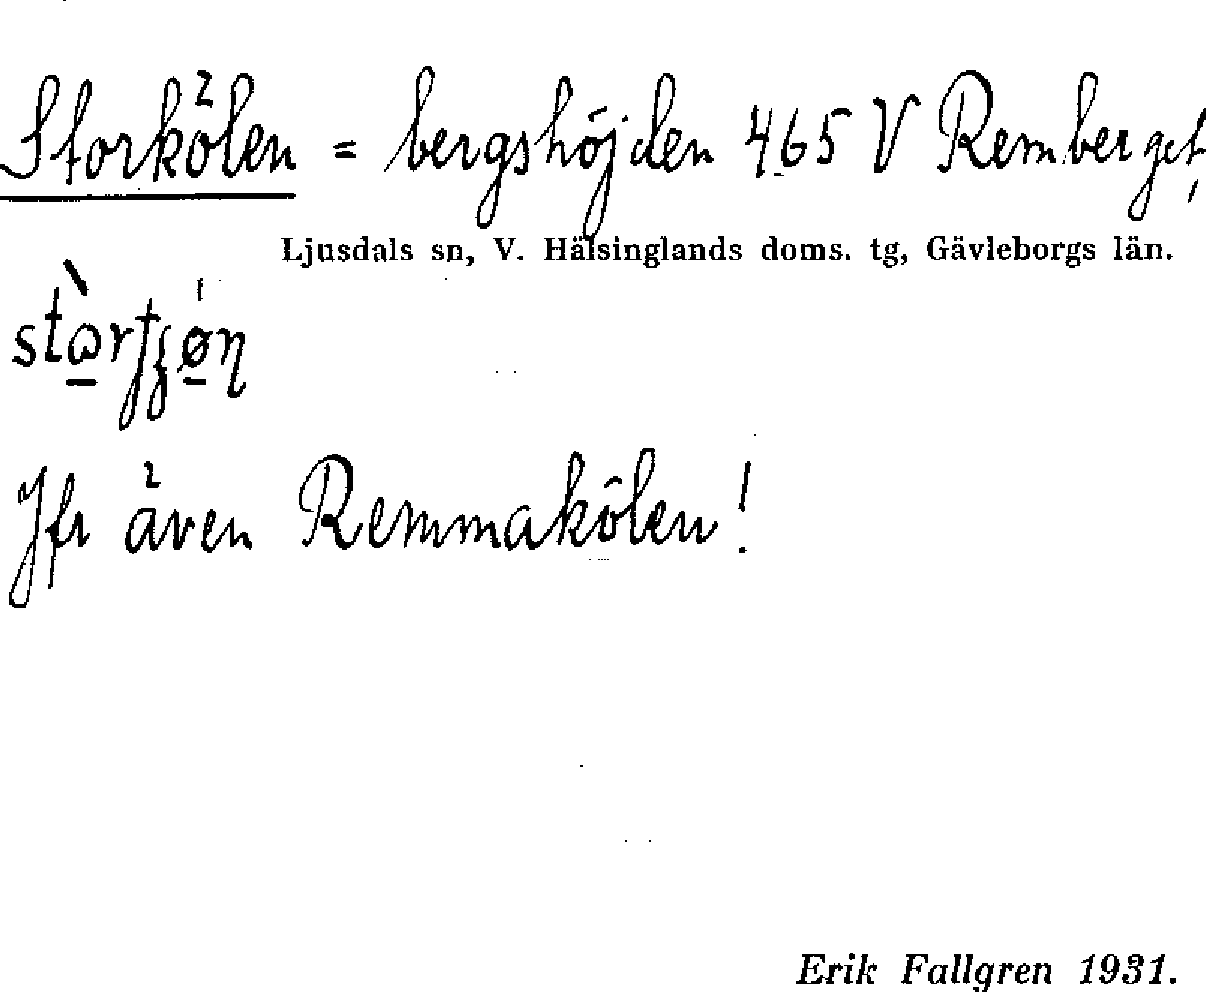 Storkölen = bergshöjden 465 V Remberget,
Ljusdals sn, V. Hälsinglands doms. tg, Gävleborgs län.
Jfr även Remmakölen!
Erik Fallgren 1931.